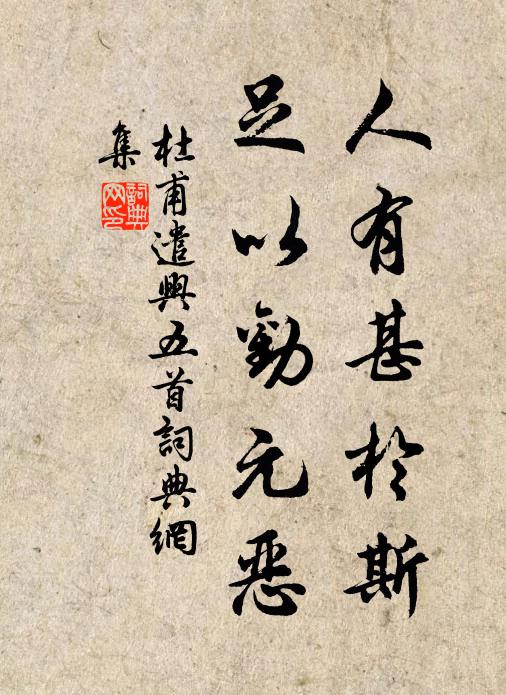 人有甚於斯
足以勸元惡
杜甫遣興五首詞典網
集
詞典
网印